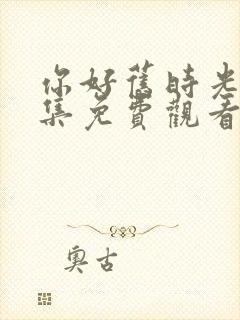 你好舊時光
集免費觀看
奧古